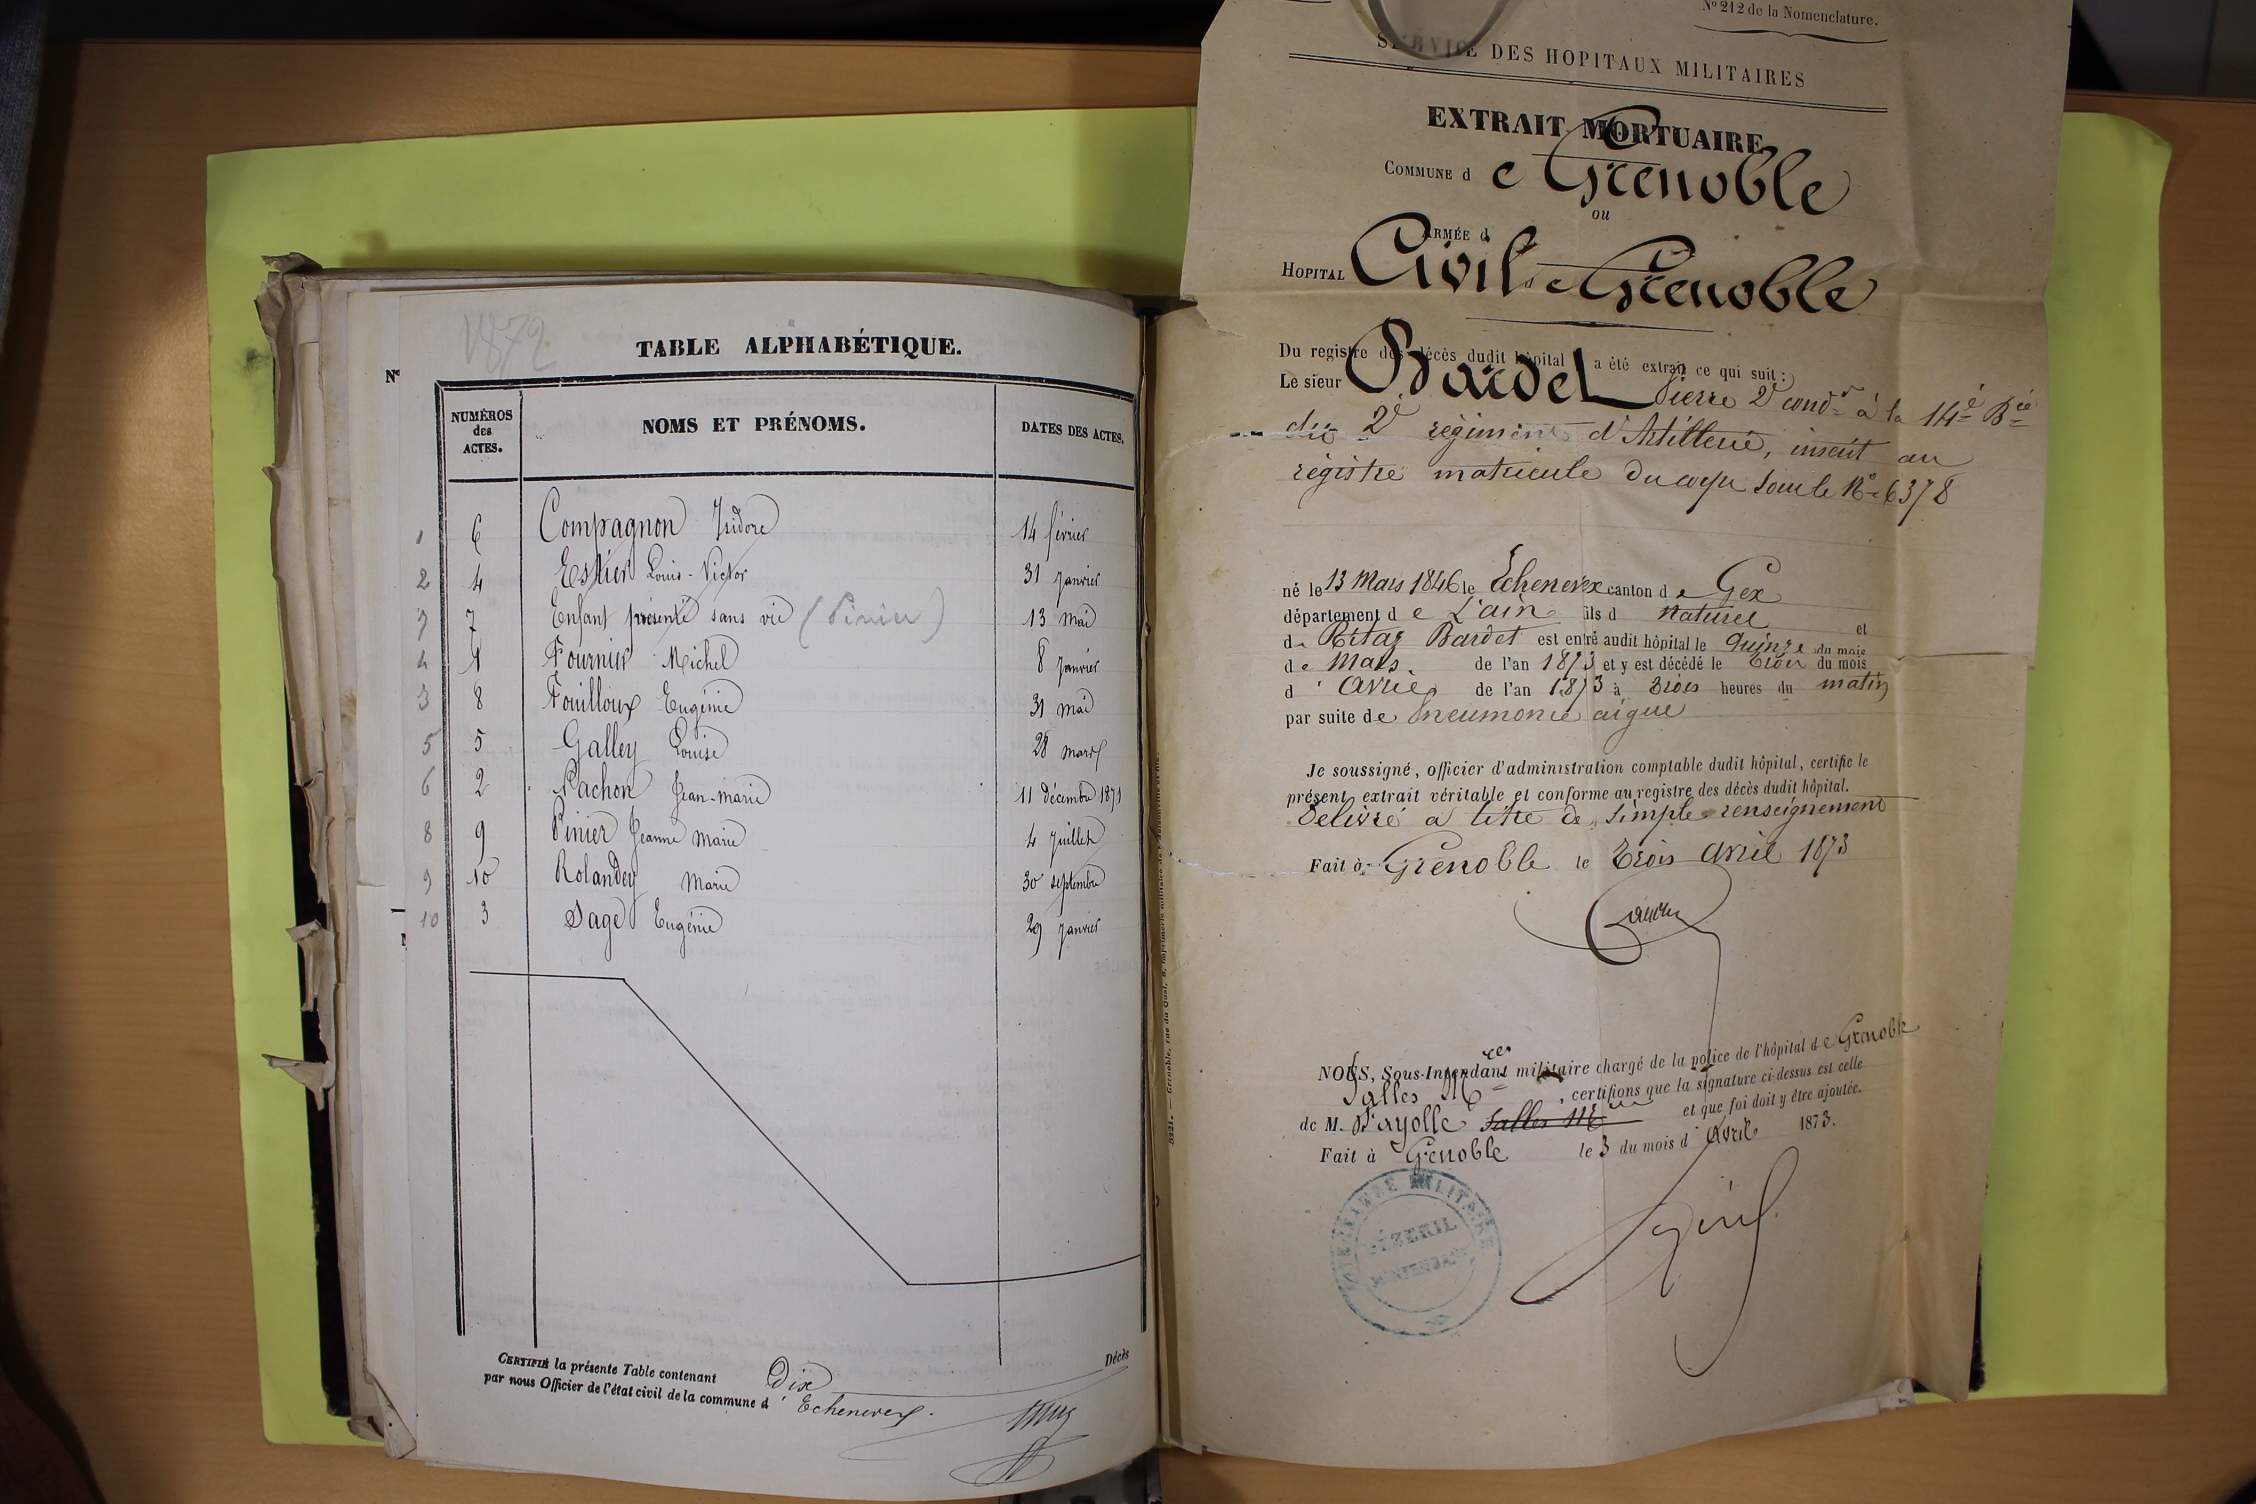 1872
TABLE ALPHABÉTIQUE.
Nº
NUMÉROS des ACTES. NOMS ET PRÉNOMS. DATES DES ACTES.
1 6 Compagnon Isidore 14 février
2 4 Estier Louis-Victor 31 janvier
7 7 Enfant présenté sans vie (Pinier) 13 mai
4 1 Fournier Michel 8 janvier
3 8 Fouilloux Eugénie 31 mai
5 5 Galley Louise 28 mars
6 2 Pachon Jean-Marie 11 décembre 1871
8 9 Pinier Jeanne Marie 4 juillet
9 10 Rolandey Marie 30 septembre
10 3 Sage Eugénie 29 janvier
CERTIFIÉ la présente Table contenant Dix Décès
par nous Officier de l'état civil de la commune d'Echenevex.
Nº 212 de la Nomenclature.
SERVICE DES HOPITAUX MILITAIRES
EXTRAIT MORTUAIRE
COMMUNE de Grenoble
ou
ARMÉE d
HOPITAL Civil de Grenoble
Du registre des décès dudit hôpital a été extrait ce qui suit :
Le sieur Bardet Pierre 2e condr à la 14e Bie
du 2e régiment d'Artillerie, inscrit au
régistre matricule du corps sous le Nº 6378
né le 13 Mars 1846 le Echenevex canton de Gex
département de L'ain fils d naturel et
de Ritaz Bardet est entré audit hôpital le quinze du mois
de Mars de l'an 1873 et y est décédé le trois du mois
d'avril de l'an 1873 à trois heures du matin
par suite de Pneumonie aigue
Je soussigné, officier d'administration comptable dudit hôpital, certifie le
présent extrait véritable et conforme au registre des décès dudit hôpital.
Délivré a titre de simple renseignement
Fait à Grenoble le trois avril 1873
NOUS, Sous-Intendant militaire chargé de la police de l'hôpital de Grenoble
Salles Mres, certifions que la signature ci-dessus est celle
de M. Fayolle Salles Mres et que foi doit y être ajoutée.
Fait à Grenoble le 3 du mois d'Avril 1873.
MILITAIRE